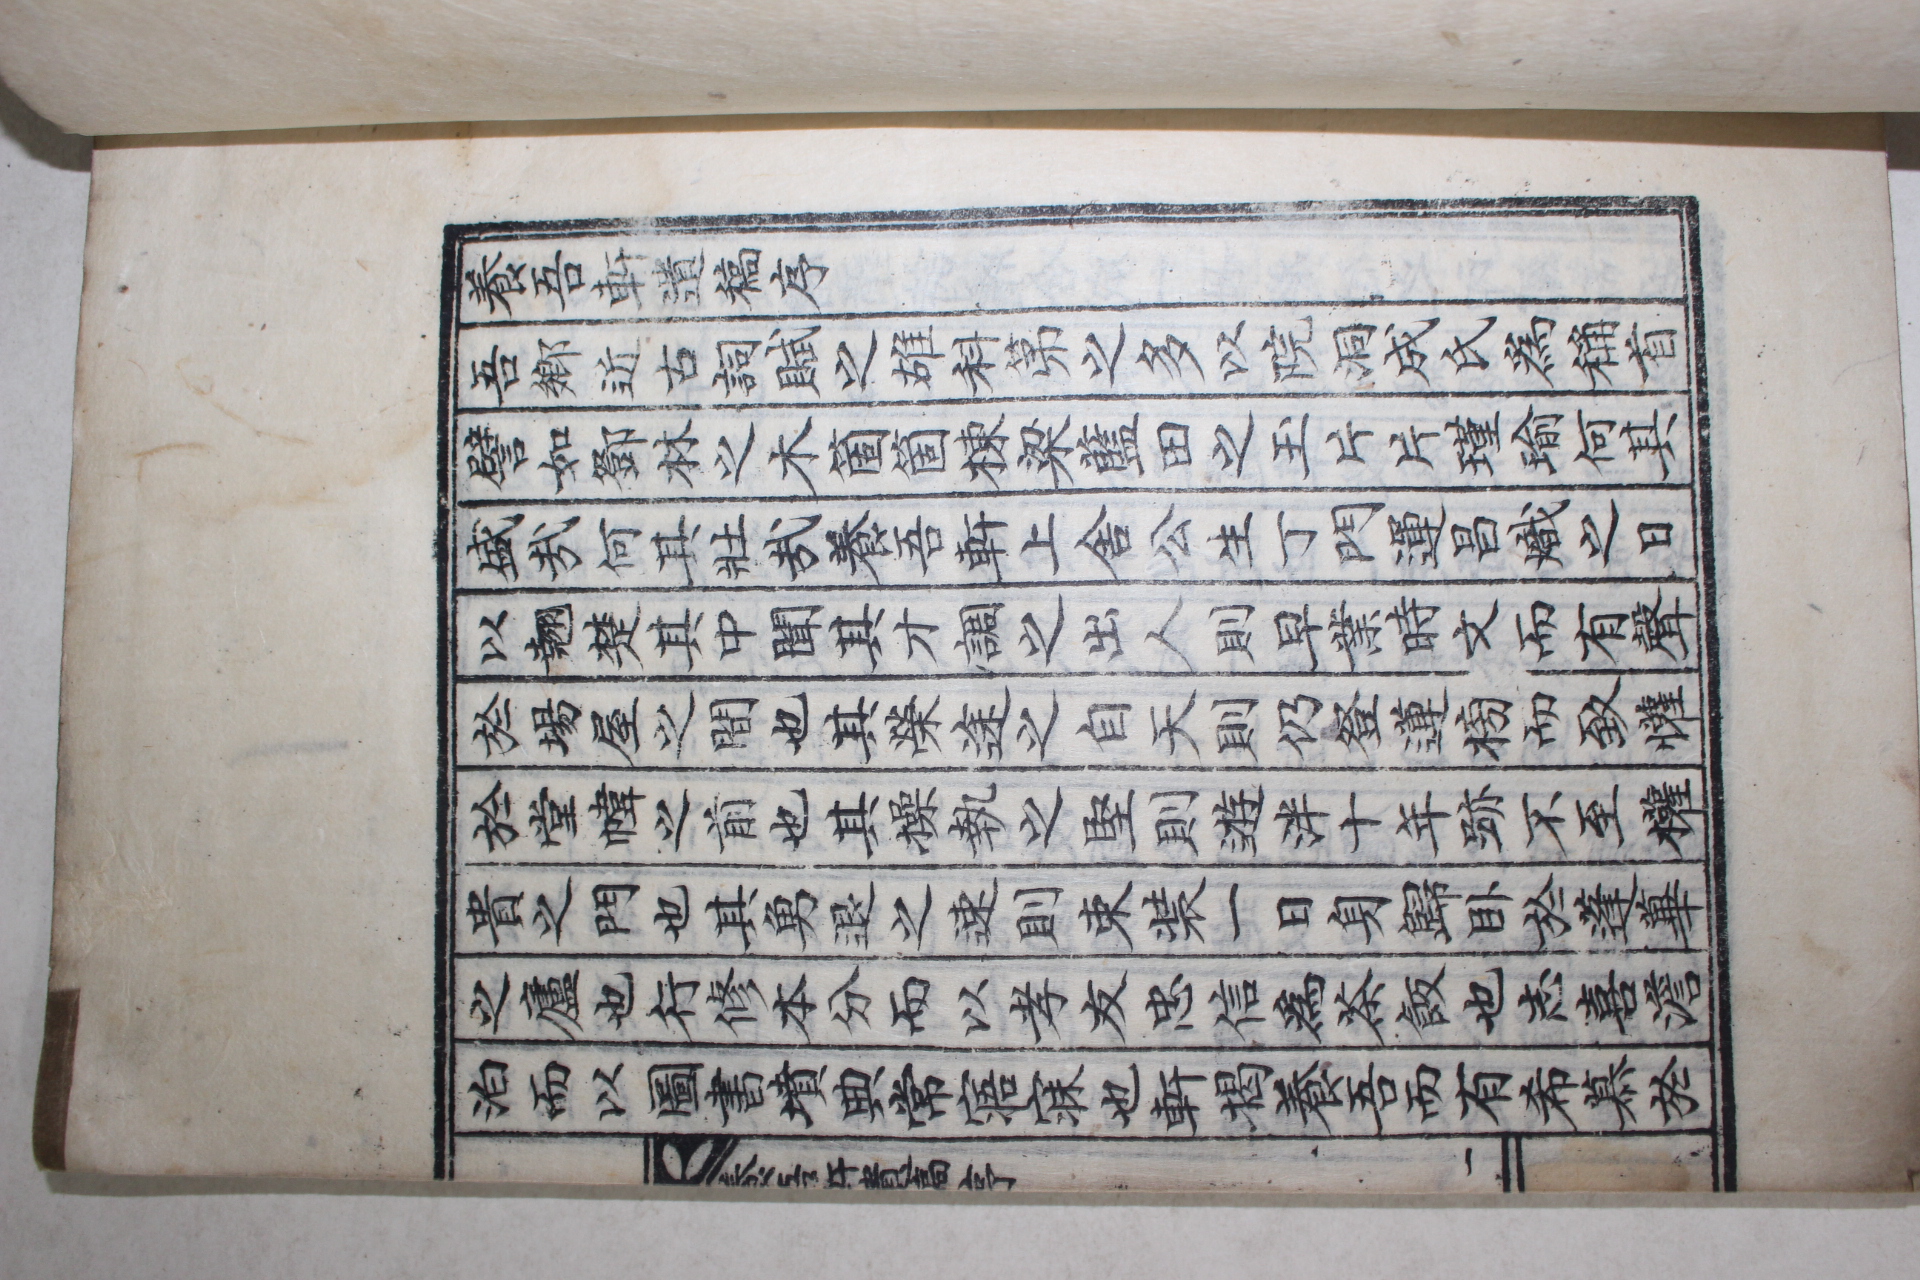 養吾軒遺稿序
吾鄕近古詞賦之雄科第之多以院洞成氏爲稱首
譬如鄧林之木箇箇棟樑藍田之玉片片瑾瑜何其
盛哉何其壯哉養吾軒上舍公生丁門運昌熾之日
以翹楚其中聞其才調之出人則早業時文而有聲
於場屋之間也其榮途之自天則仍登蓮榜而致懽
於堂幃之前也其操執之堅則遊泮十年跡不至權
貴之門也其勇退之速則束裝一日身歸臥於蓬蓽
之廬也行修本分而以孝友忠信爲茶飯也志喜澹
泊而以圖書墳典常寤寐也軒揭養吾而有希慕於
養吾軒遺稿序 一